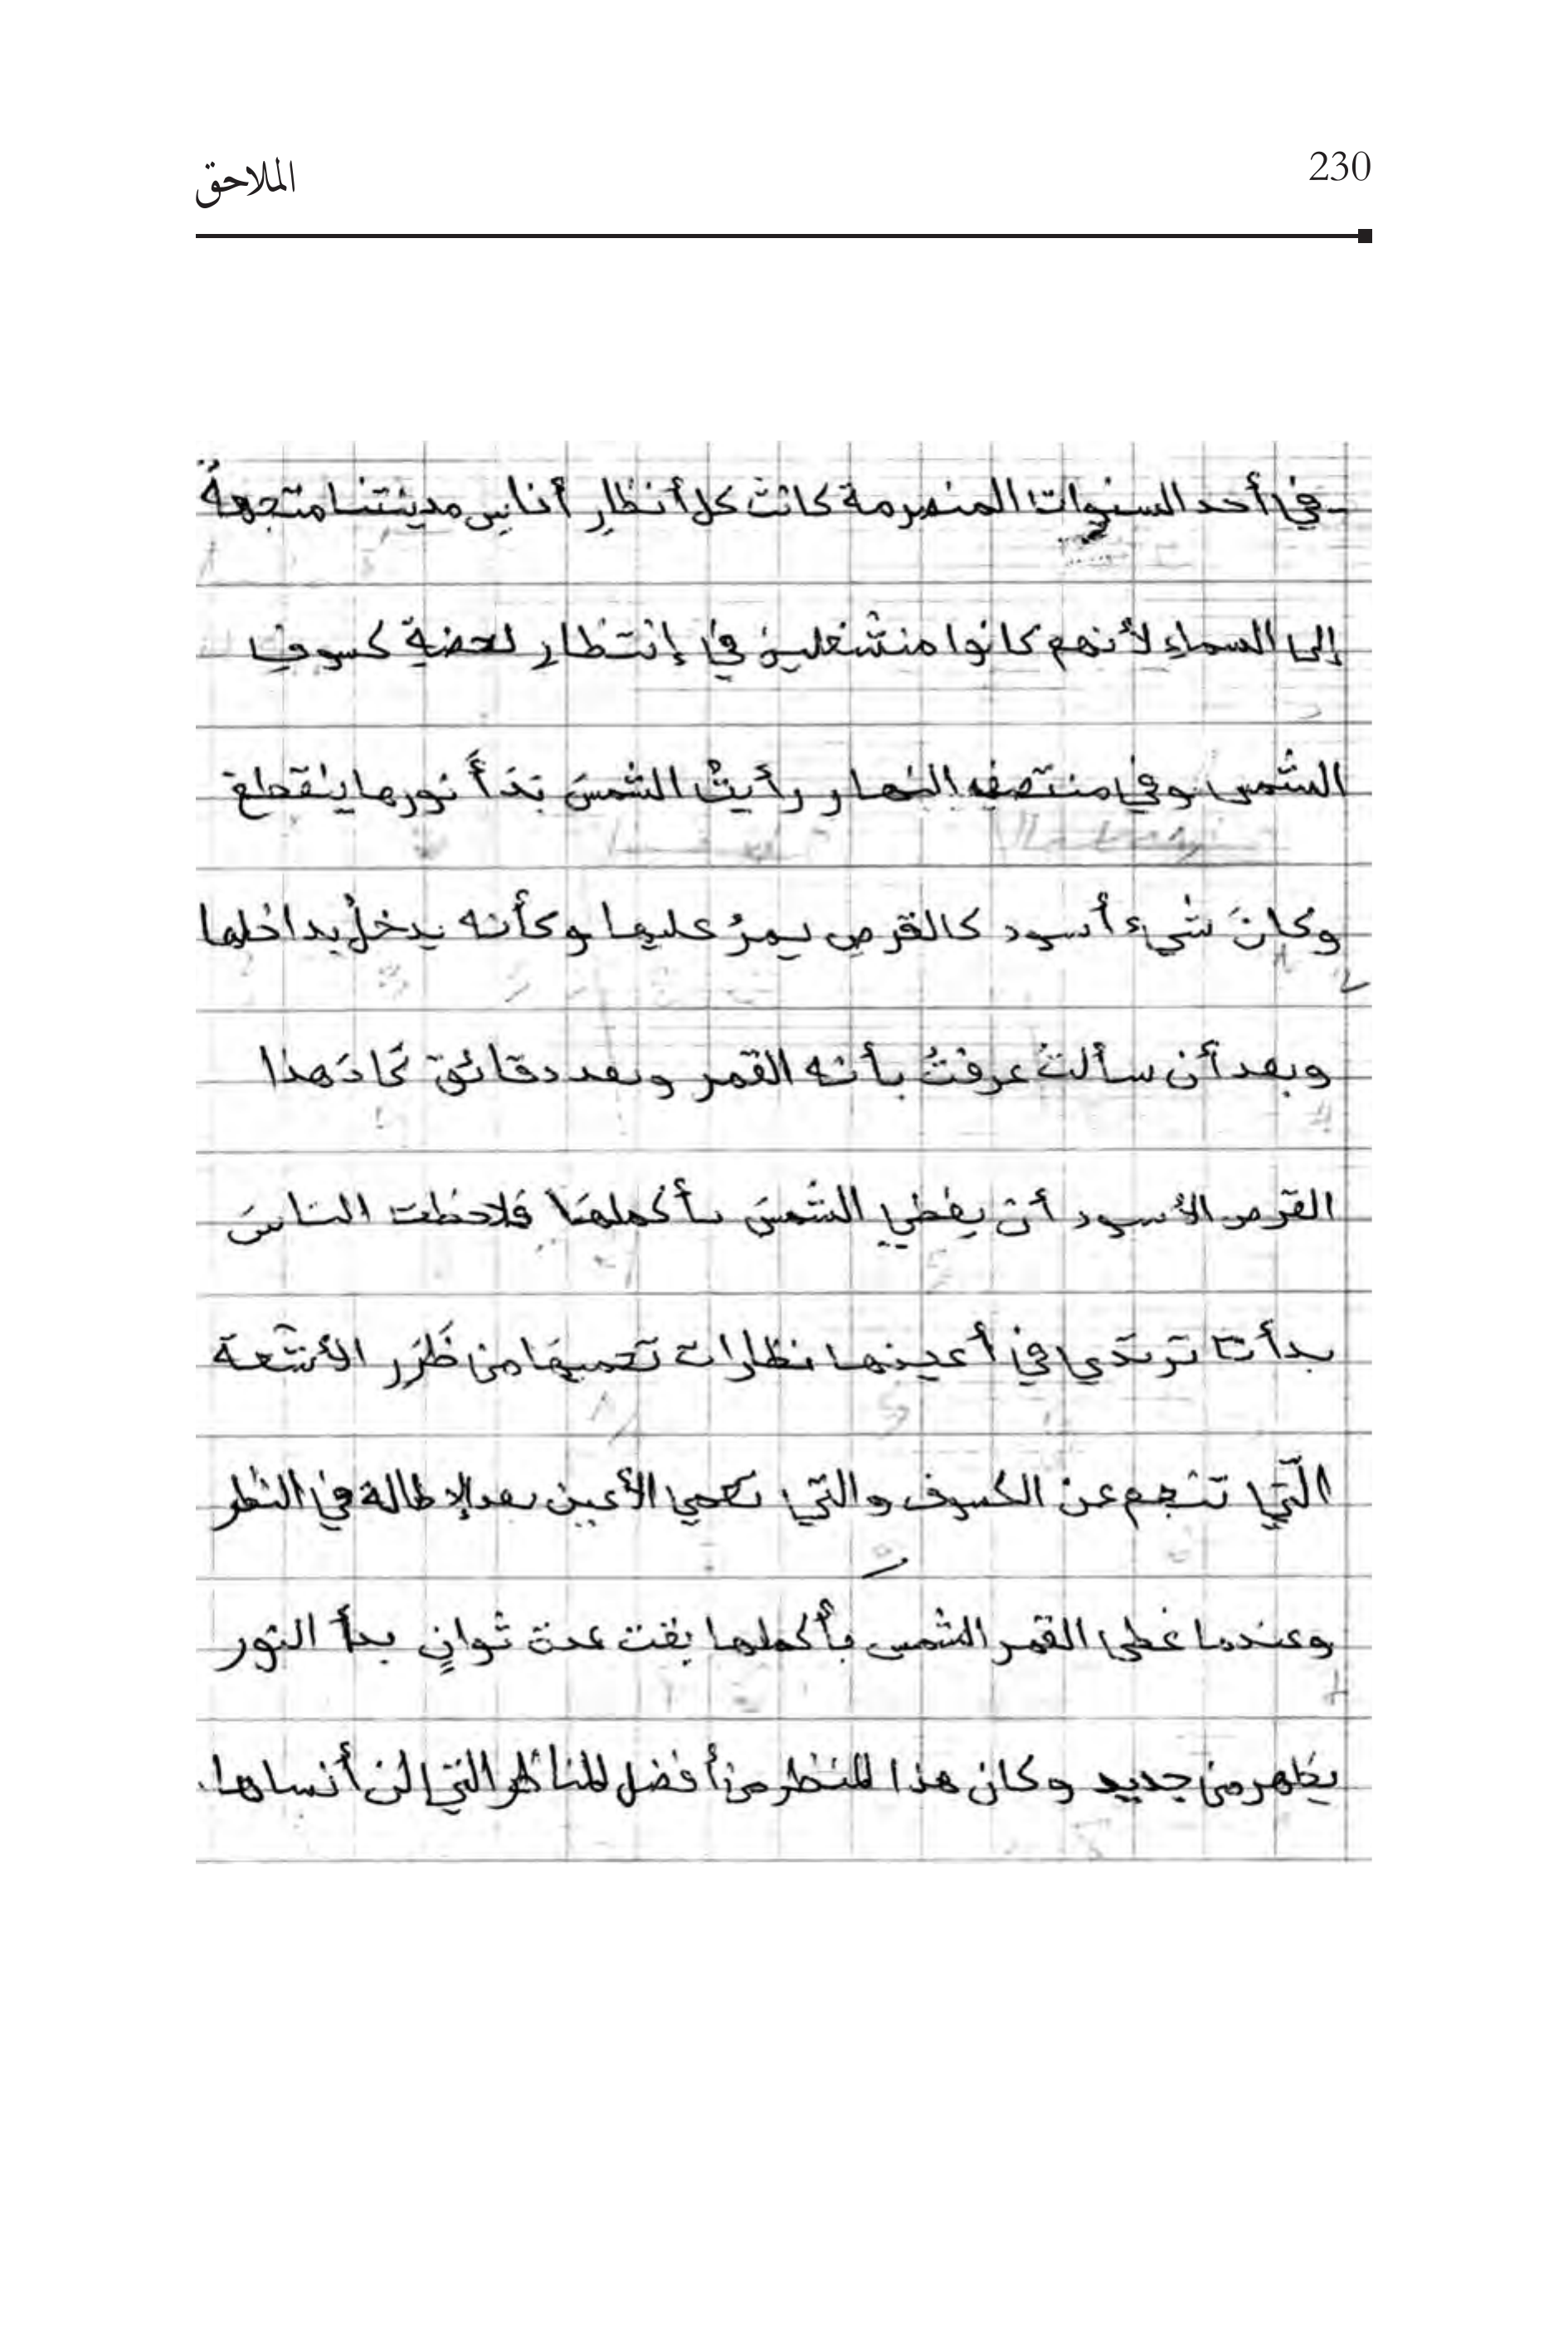 230
الملاحق
في أحد السنوات المنصرمة كانتْ كل أنظارِ أناسِ مدينتنا متجهةً
إلى السماءِ لأنهم كانوا منشغلين في إنتظارِ لحضةِ كسوفِ
الشمسِ وفي منتصفِ النهار رأيتُ الشمسَ بَدَأَ نورها ينقطع
وكانَ شيء أسود كالقرصِ يمرُ عليها وكأنه يدخلُ بداخلها
وبعد أن سألتُ عرفتُ بأنه القمر وبعد دقائق كَادَ هذا
القرص الأسود أن يغطي الشمسَ بأكملهَا فلاحظت الناسَ
بدأت ترتدي في أعينها نظارات تحميهَا من ظَرَر الأشعة
الّتي تنجم عن الكسوف والتي تعمي الأعين بعد الإطالة في النظر
وعندما غطى القمر الشمس بأكملها بقت عدة ثوانٍ بدأ النور
يظهر من جديد وكان هذا المنظر من أفضل المناظر التي لن أنساها.